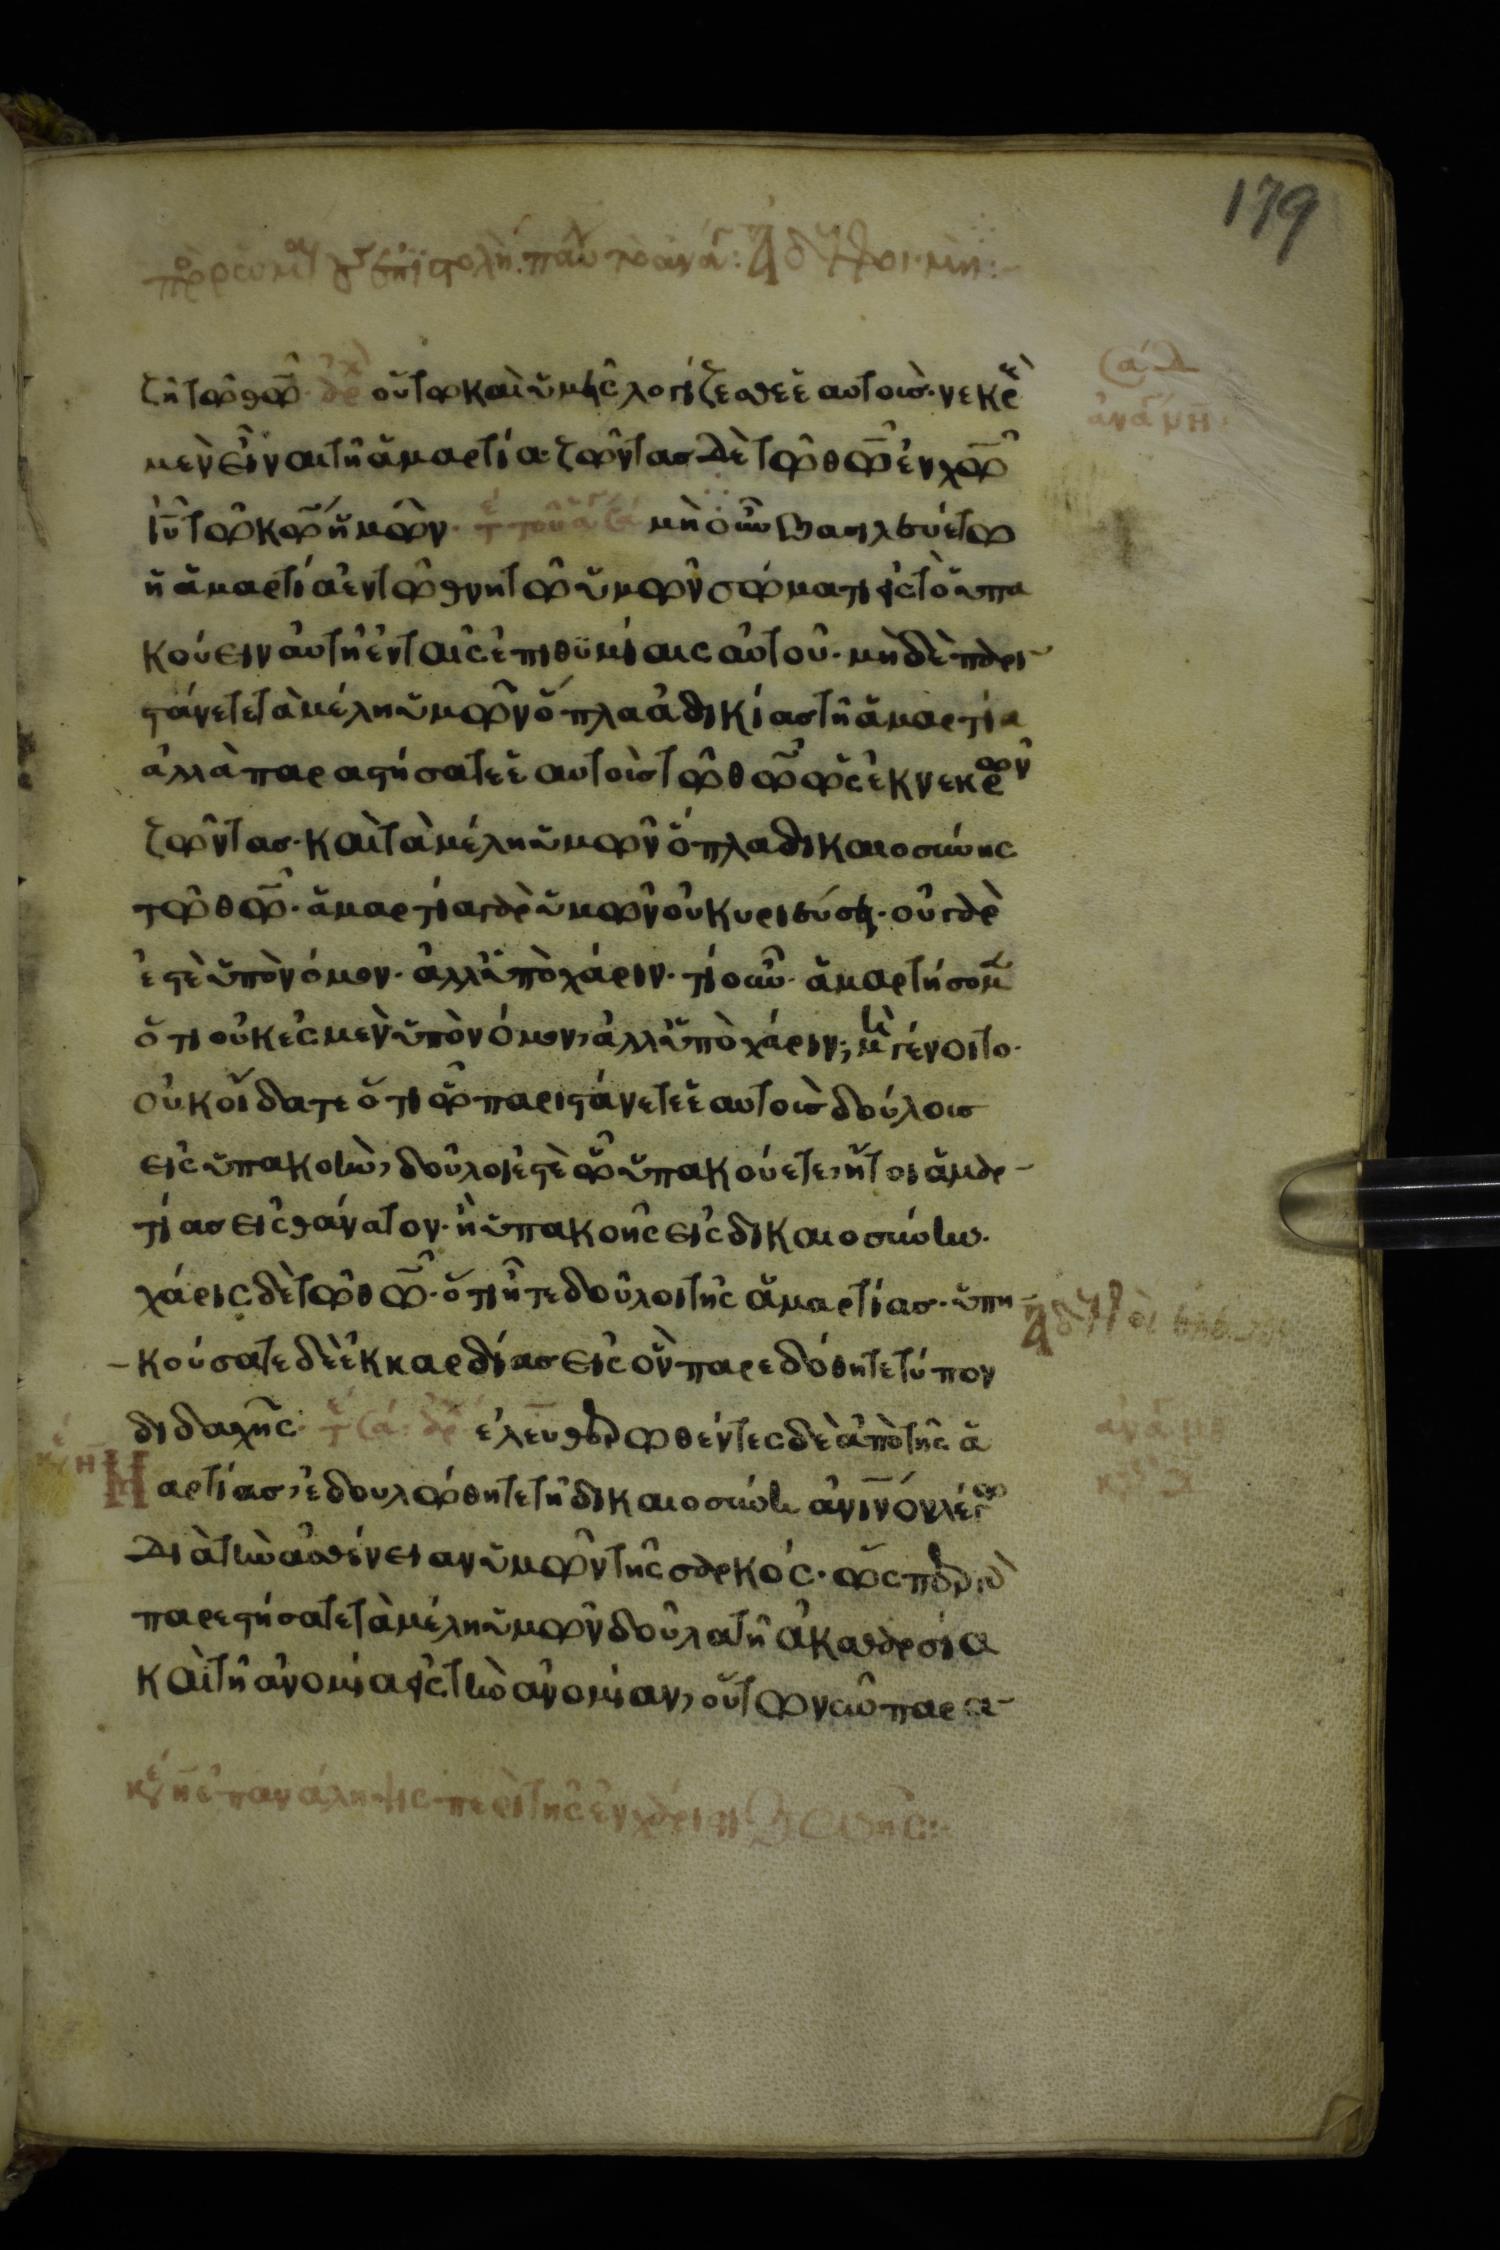 179
ζῇ τῷ θῷ. οὕτω καὶ ὑμεῖς λογίζεσθε ἑαυτοὺς νεκρ
μὲν εἶναι τῇ ἁμαρτία· ζῶντας δὲ τῷ θῷ ἐν χῷ
ἰῦ τῷ κῷ ἡμῶν. μὴ οὖν βασιλευέτω
ἡ ἁμαρτία ἐν τῷ θνητῷ ὑμῶν σώματι εἰς τὸ ὑπα
κούειν αὐτῇ ἐν ταῖς ἐπιθυμίαις αὐτοῦ. μηδὲ παρι
στάνετε τὰ μέλη ὑμῶν ὅπλα ἀδικίας τῇ ἁμαρτία
ἀλλὰ παραστήσατε ἑαυτοὺς τῷ θῷ ὡς ἐκ νεκρῶν
ζῶντας. καὶ τὰ μέλη ὑμῶν ὅπλα δικαιοσύνης
τῷ θῷ. ἁμαρτία γὰρ ὑμῶν οὐ κυριεύσει. οὐ γάρ
ἐστὲ ὑπὸ νόμον. ἀλλ' ὑπὸ χάριν. τί οὖν. ἁμαρτήσομ
ὅτι οὐκ ἐσμὲν ὑπὸ νόμον, ἀλλ' ὑπὸ χάριν; μὴ γένοιτο.
οὐκ οἴδατε ὅτι ᾧ παριστάνετε ἑαυτοὺς δούλους
εἰς ὑπακοὴν, δοῦλοι ἐστὲ ᾧ ὑπακούετε, ἤτοι ἁμαρ
τίας εἰς θάνατον. ἢ ὑπακοῆς εἰς δικαιοσύνην.
χάρις δὲ τῷ θῷ. ὅτι ἦτε δοῦλοι τῆς ἁμαρτίας. ὑπη
κούσατε δὲ ἐκ καρδίας εἰς ὃν παρεδόθητε τύπον
διδαχῆς. ἐλευθερωθέντες δὲ ἀπὸ τῆς ἁ
μαρτίας, ἐδουλώθητε τῇ δικαιοσύνη ἀνινον λέγω
διὰ τὴν ἀσθένειαν ὑμῶν τῆς σαρκός. ὥσπερ γὰρ
παρεστήσατε τὰ μέλη ὑμῶν δοῦλα τῇ ἀκαθαρσία
καὶ τῇ ἀνομία εἰς τὴν ἀνομίαν, οὕτω νῦν παρα